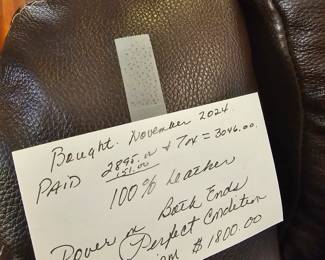 Bought November 2024
PAID 2895.00 & Tax = 3046.00
151.00
100% Leather
Power on Both Ends
Perfect Condition
$1800.00